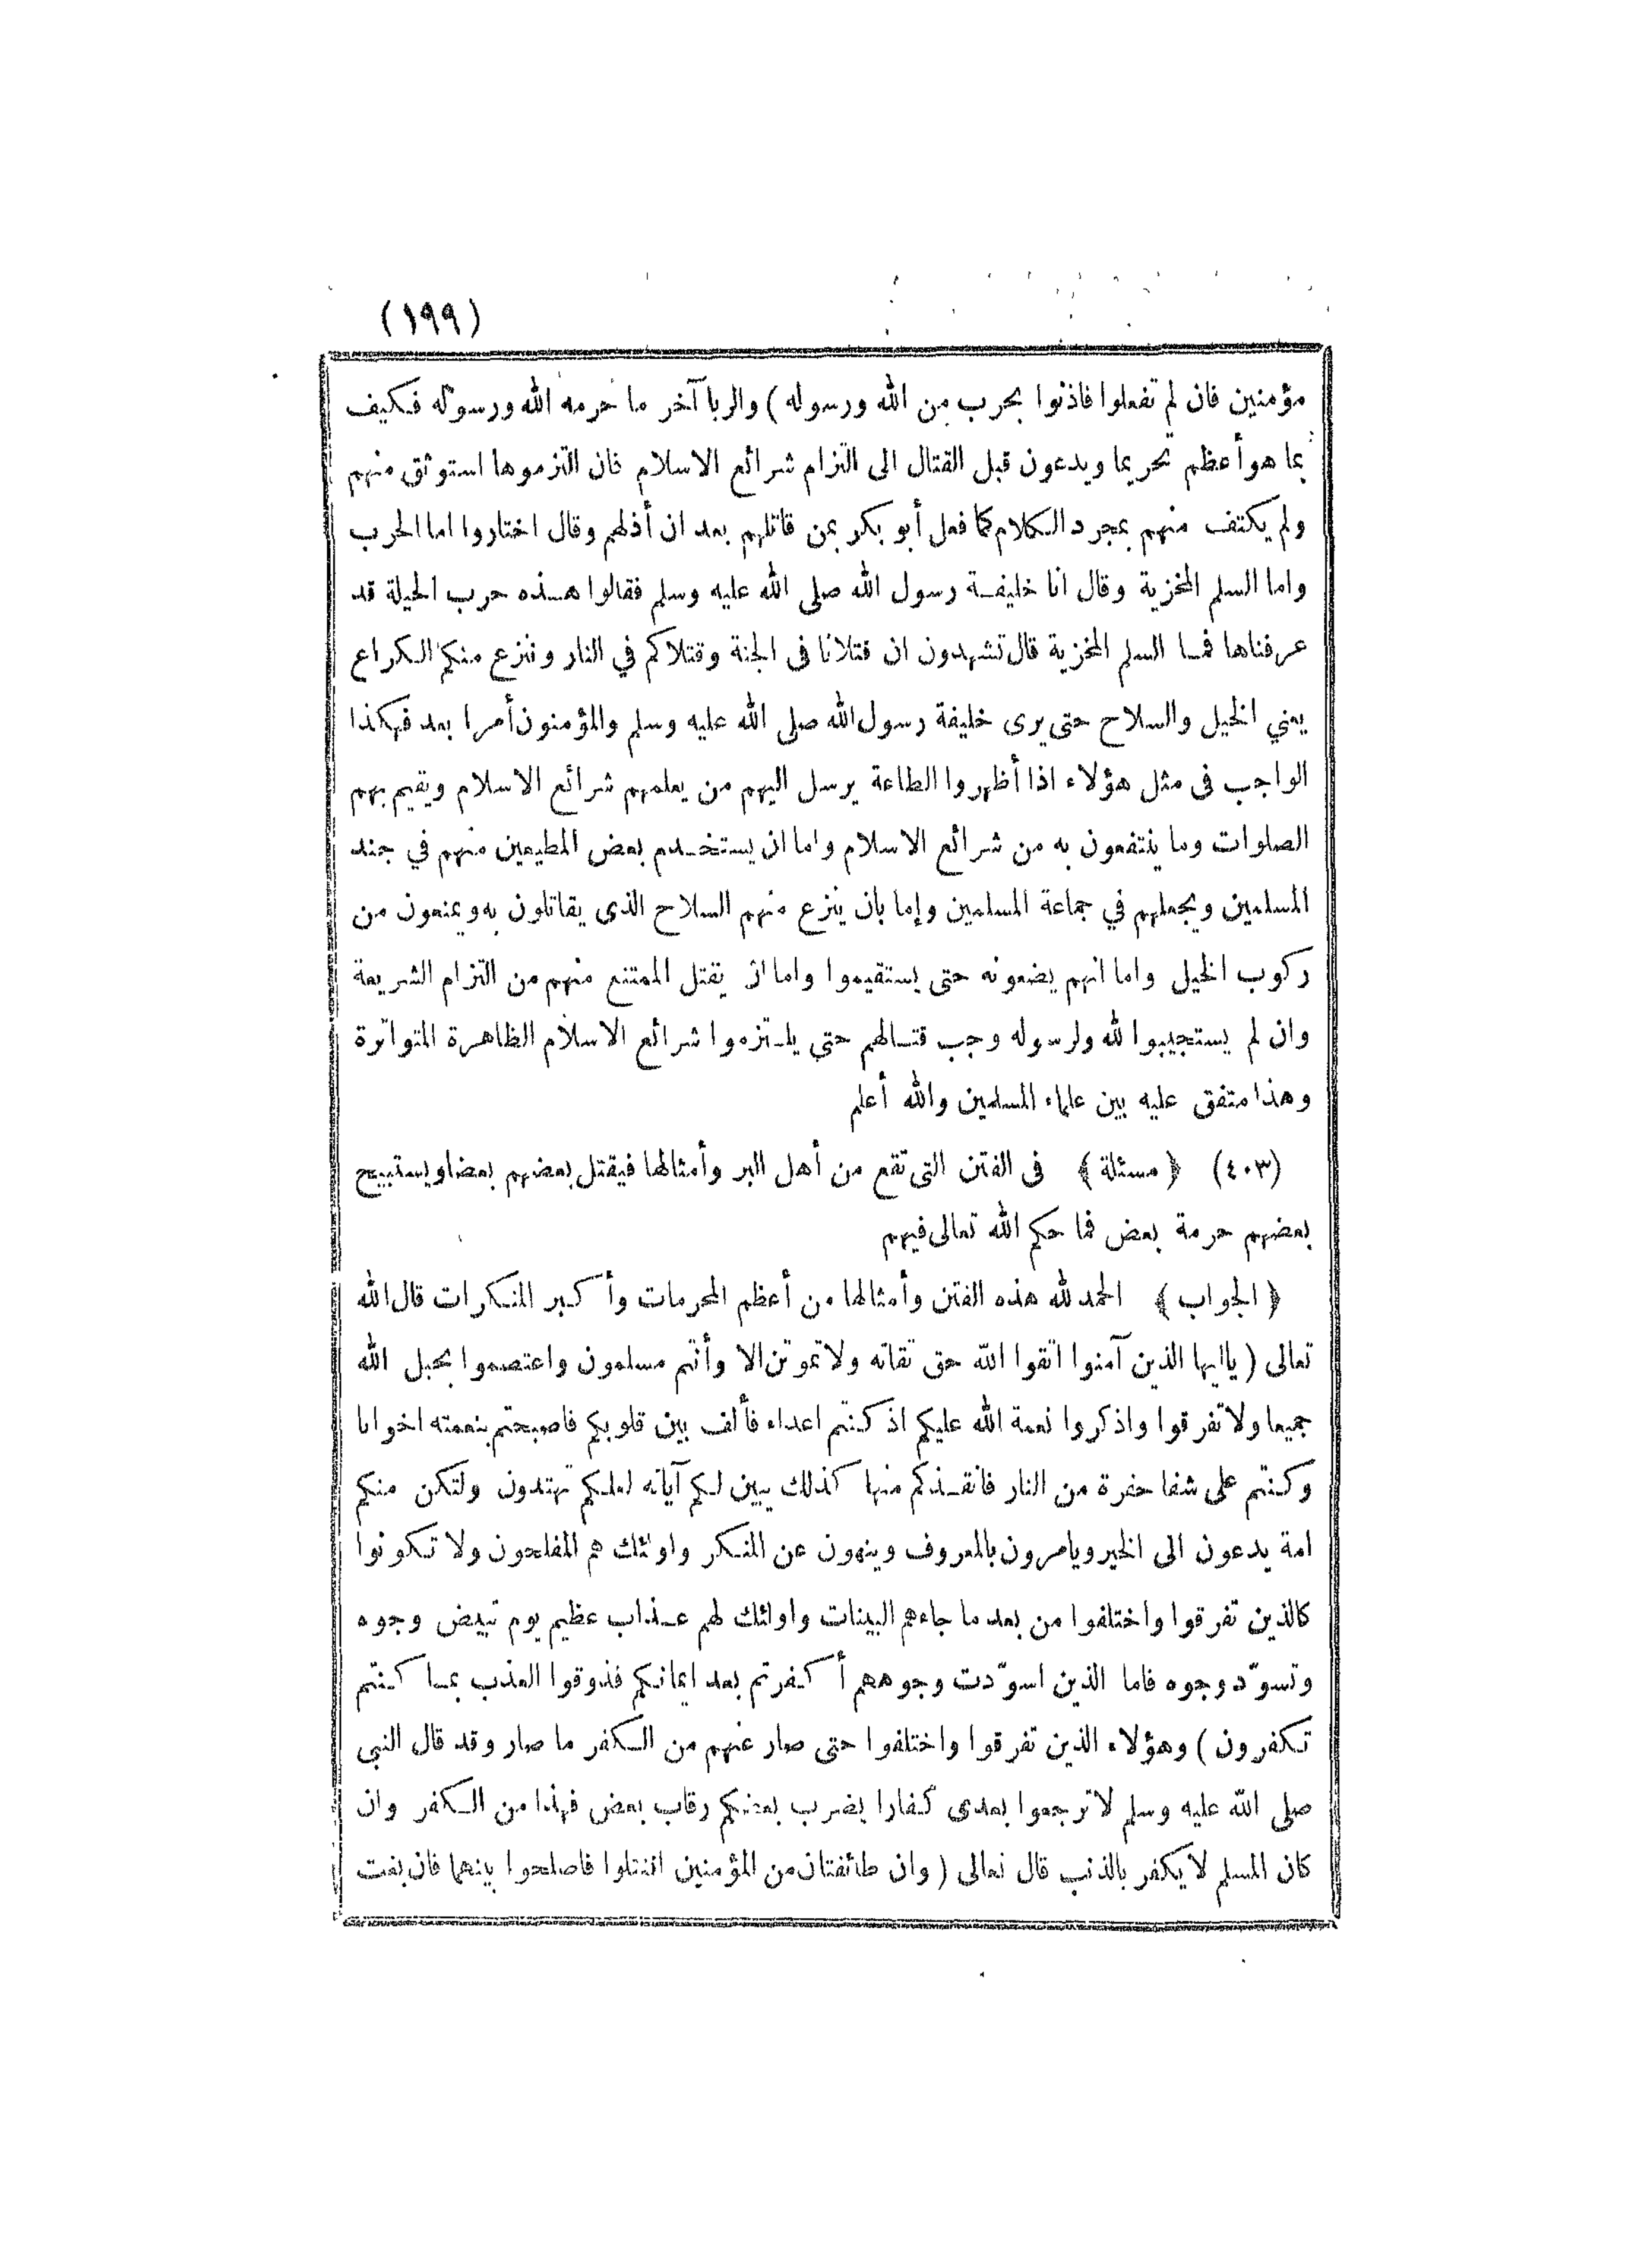 (١٩٩)
مؤمنين فان لم تفعلوا فاذنوا بحرب من الله ورسوله ) والربا آخر ما حرمه الله ورسوله فكيف
بما هو أعظم تحريما ويدعون قبل القتال الى التزام شرائع الاسلام فان التزموها استوثق منهم
ولم يكتف منهم بمجرد الكلام كما فعل أبو بكر بمن قاتلهم بعد ان أذلهم وقال اختاروا اما الحرب
واما السلم المخزية وقال انا خليفة رسول الله صلى الله عليه وسلم فقالوا هذه حرب الحيلة قد
عرفناها فما السلم المخزية قال تشهدون ان قتلانا فى الجنة وقتلاكم في النار وننزع منكم الكراع
يعني الخيل والسلاح حتى يرى خليفة رسول الله صلى الله عليه وسلم والمؤمنون أمرا بعد فهكذا
الواجب فى مثل هؤلاء اذا أظهروا الطاعة يرسل اليهم من يعلمهم شرائع الاسلام ويقيم بهم
الصلوات وما ينتفعون به من شرائع الاسلام واما ان يستخدم بعض المطيعين منهم في جند
المسلمين ويجعلهم في جماعة المسلمين وإما بان ينزع منهم السلاح الذى يقاتلون به ويمنعون من
ركوب الخيل واما انهم يضعونه حتى يستقيموا واما ان يقتل الممتنع منهم من التزام الشريعة
وان لم يستجيبوا لله ولرسوله وجب قتالهم حتى يلتزموا شرائع الاسلام الظاهرة المتواترة
وهذا متفق عليه بين علماء المسلمين والله أعلم
(٤٠٣) ﴿ مسئلة ﴾ فى الفتن التى تقع من أهل البر وأمثالها فيقتل بعضهم بعضا ويستبيح
بعضهم حرمة بعض فما حكم الله تعالى فيهم
﴿ الجواب ﴾ الحمد لله هذه الفتن وأمثالها من أعظم المحرمات وأكبر المنكرات قال الله
تعالى ( ياايها الذين آمنوا اتقوا الله حق تقاته ولا تموتن الا وأنتم مسلمون واعتصموا بحبل الله
جميعا ولا تفرقوا واذكروا نعمة الله عليكم اذ كنتم اعداء فألف بين قلوبكم فاصبحتم بنعمته اخوانا
وكنتم على شفا حفرة من النار فانقذكم منها كذلك يبين لكم آياته لعلكم تهتدون ولتكن منكم
امة يدعون الى الخير ويامرون بالمعروف وينهون عن المنكر واولئك هم المفلحون ولا تكونوا
كالذين تفرقوا واختلفوا من بعد ما جاءهم البينات واولئك لهم عذاب عظيم يوم تبيض وجوه
وتسوّد وجوه فاما الذين اسوّدت وجوههم أكفرتم بعد ايمانكم فذوقوا العذب بما كنتم
تكفرون ) وهؤلاء الذين تفرقوا واختلفوا حتى صار عنهم من الكفر ما صار وقد قال النبى
صلى الله عليه وسلم لا ترجعوا بعدى كفارا يضرب بعضكم رقاب بعض فهذا من الكفر وان
كان المسلم لا يكفر بالذنب قال تعالى ( وان طائفتان من المؤمنين اقتتلوا فاصلحوا بينهما فان بغت